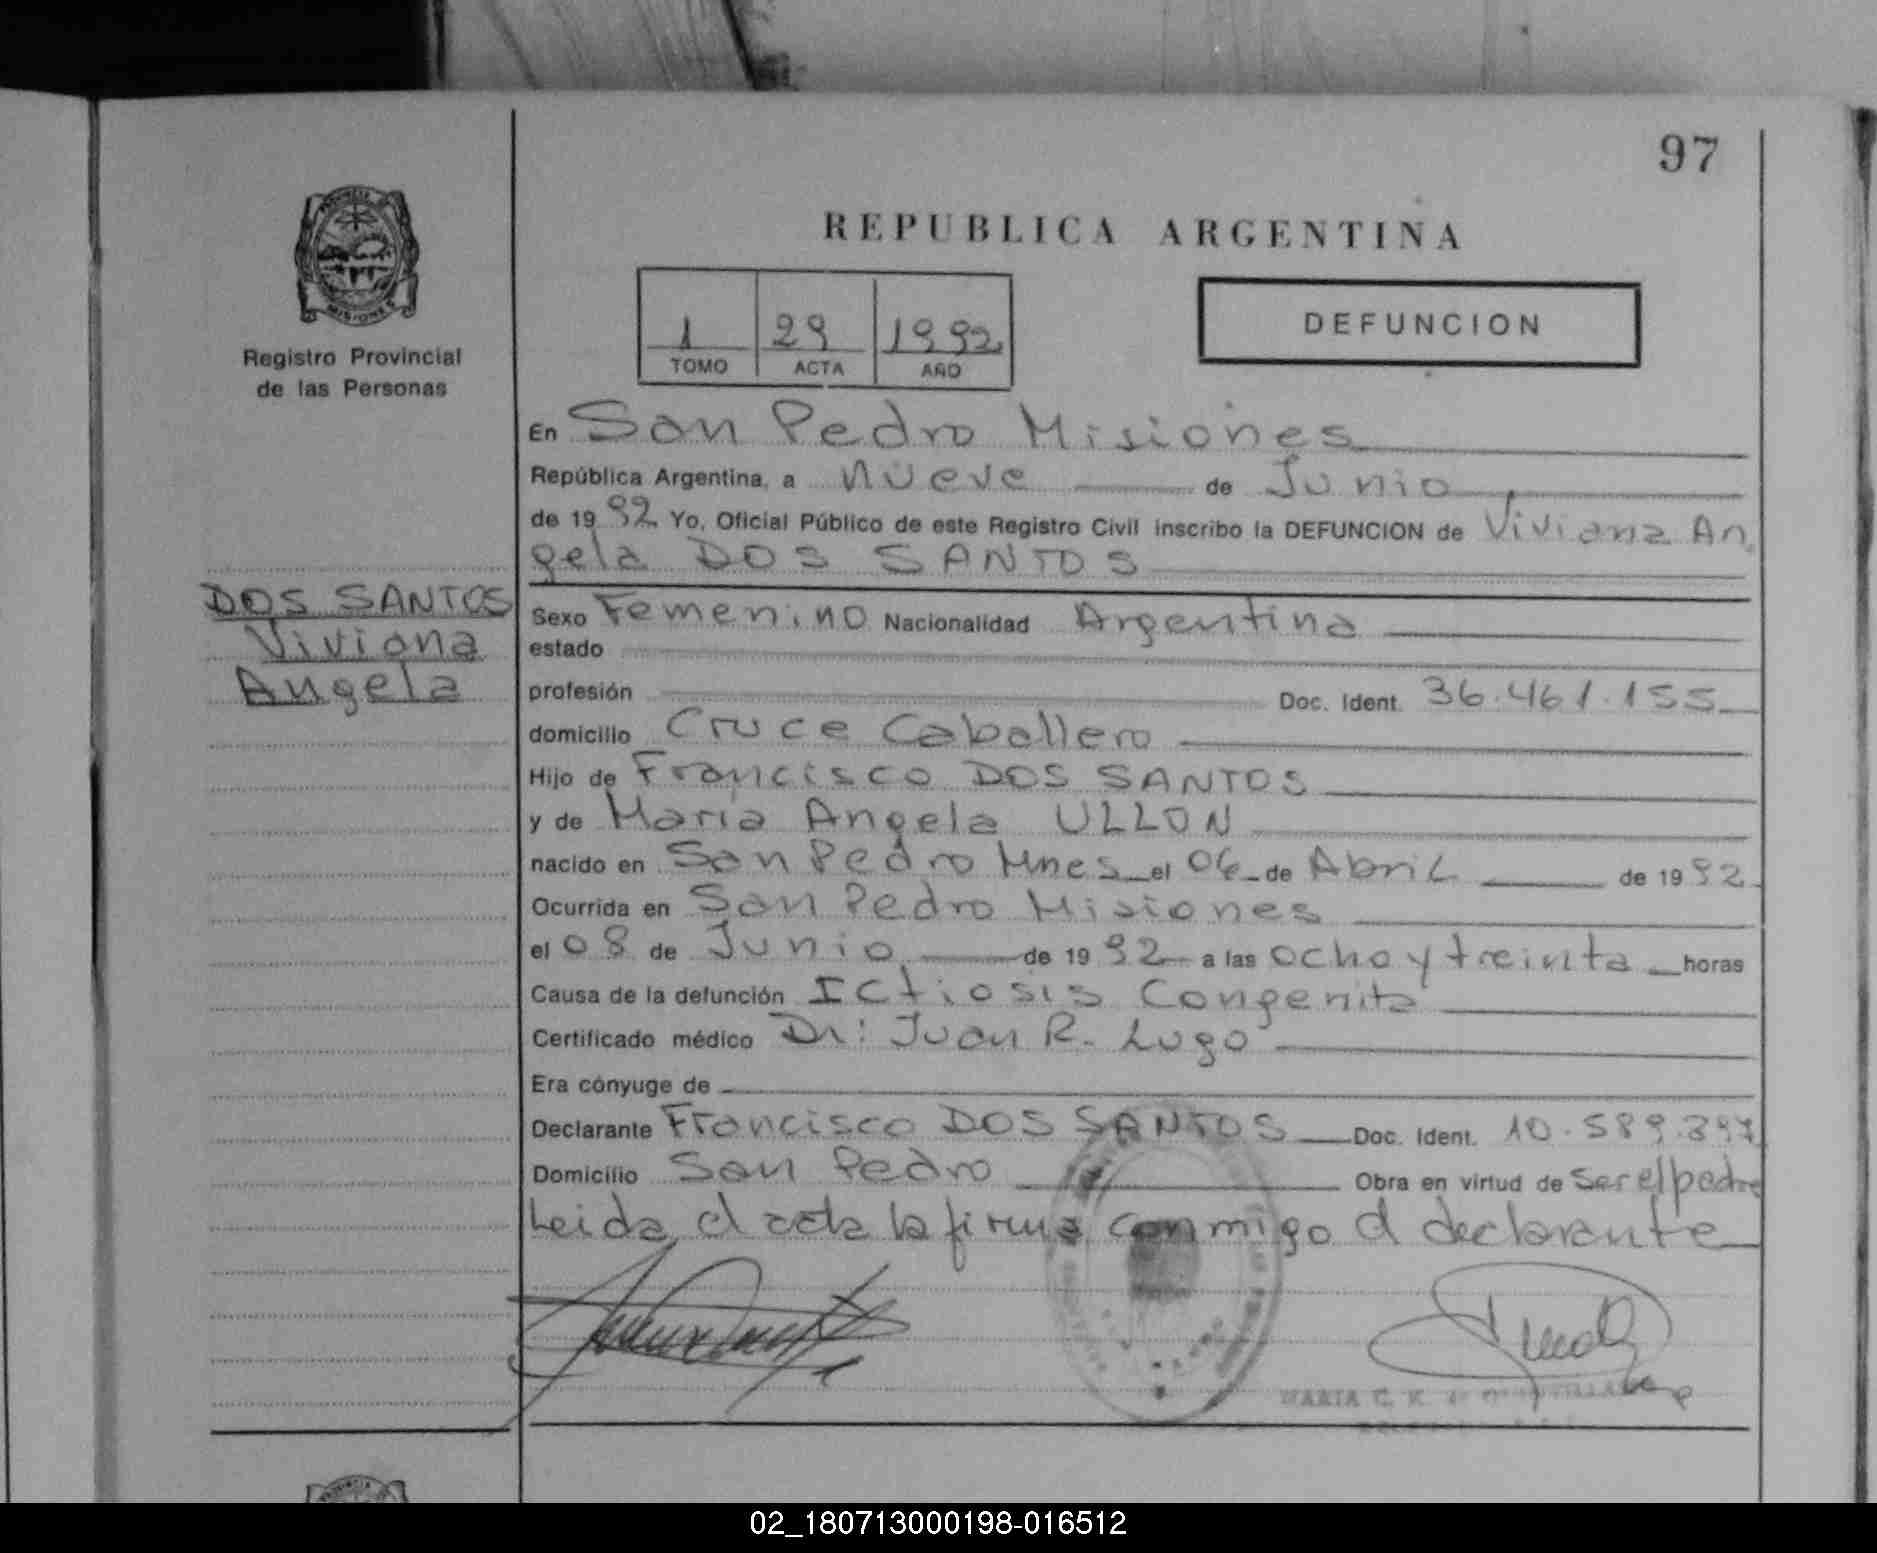 97
REPUBLICA ARGENTINA
1 29 1992
TOMO ACTA AÑO
DEFUNCION
PROVINCIA
MISIONES
Registro Provincial
de las Personas
DOS SANTOS
Viviana
Angela
En San Pedro Misiones
República Argentina, a nueve de Junio
de 1992 Yo, Oficial Público de este Registro Civil inscribo la DEFUNCION de Viviana An
gela DOS SANTOS
Sexo Femenino Nacionalidad Argentina
estado
profesión Doc. Ident. 36.461.155
domicilio Cruce Caballero
Hijo de Francisco DOS SANTOS
y de María Angela ULLON
nacido en San Pedro Mnes el 06 de Abril de 1992
Ocurrida en San Pedro Misiones
el 08 de Junio de 1992 a las ocho y treinta horas
Causa de la defunción Ictiosis Congenita
Certificado médico Dr: Juan R. Lugo
Era cónyuge de
Declarante Francisco DOS SANTOS Doc. Ident. 10.589.397
Domicilio San Pedro Obra en virtud de ser el padre
Leida el acta la firma conmigo el declarante
MARIA C. K.
02_180713000198-016512